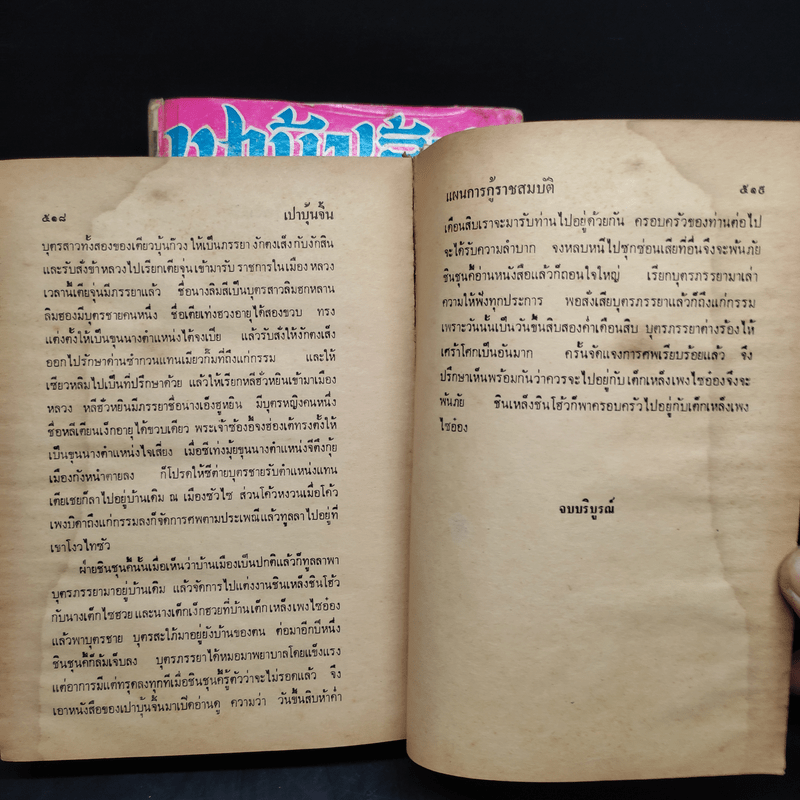 เปาบุ้นจิ้น
๕๑๘
เปาบุ้นจิ้น
บุตรสาวทั้งสองของเตียวบุ้นก๊วง ให้เป็นภรรยา งักตงเส็งกับงักสิน
และรับสั่งข้าหลวงไปเรียกเตียจุ่นเข้ามารับ ราชการในเมือง หลวง
เวลานี้เตียจุ่นมีภรรยาแล้ว ชื่อนางลิมสีเป็นบุตรสาวลิมฮกหลาน
ลิมฮองมีบุตรชายคนหนึ่ง ชื่อเตียเท่งฮวงอายุได้สองขวบ ทรง
แต่งตั้งให้เป็นขุนนางตำแหน่งได้จงเปีย แล้วรับสั่งให้งักตงเส็ง
ออกไปรักษาด่านซำกวนแทนเมียวกิ๊มที่ถึงแก่กรรม และให้
เซียวหลิมไปเป็นที่ปรึกษาด้วย แล้วให้เรียกหลีฮัวหยินเข้ามาเมือง
หลวง หลีฮัวหยินมีภรรยาชื่อนางเอ็งฮูหยิน มีบุตรหญิงคนหนึ่ง
ชื่อหลีเตียนเง็กอายุได้ขวบเดียว พระเจ้าซ้องอี้จงฮ่องเต้ทรงตั้งให้
เป็นขุนนางตำแหน่งไจเสี่ยง เมื่อซีเท่งมุ้ยขุนนางตำแหน่งจีตึงกุ้ย
เมืองกังหนำตายลง ก็โปรดให้ซีต่ายบุตรชายรับตำแหน่งแทน
เตียเชยก็ลาไปอยู่บ้านเดิม ณ เมืองซัวไซ ส่วนโค้วหงวนเมื่อโค้ว
เพงบิดาถึงแก่กรรมลงก็จัดการศพตามประเพณีแล้วทูลลาไปอยู่ที่
เขาโงวไทซัว
ฝ่ายชินชุนคี้นั้นเมื่อเห็นว่าบ้านเมืองเป็นปกติแล้วก็ทูลลาพา
บุตรภรรยามาอยู่บ้านเดิม แล้วจัดการไปแต่งงานชินเหล็งชินโฮ้ว
กับนางเต็กไซฮวยและนางเต็กเง็กฮวยที่บ้านเต็กเหล็งเพงไซอ๋อง
แล้วพาบุตรชาย บุตรสะใภ้มาอยู่ยังบ้านของตน ต่อมาอีกปีหนึ่ง
ชินชุนคี้ก็ล้มเจ็บลง บุตรภรรยาได้หมอมาพยาบาลโดยแข็งแรง
แต่อาการมีแต่ทรุดลงทุกทีเมื่อชินชุนคี้รู้ตัวว่าจะไม่รอดแล้ว จึง
เอาหนังสือของเปาบุ้นจิ้นมาเปิดอ่านดู ความว่า วันขึ้นสิบห้าค่ำ
แผนการกู้ราชสมบัติ
๕๑๙
เดือนสิบเราจะมารับท่านไปอยู่ด้วยกัน ครอบครัวของท่านต่อไป
จะได้รับความลำบาก จงหลบหนีไปซุกซ่อนเสียที่อื่นจึงจะพ้นภัย
ชินชุนคี้อ่านหนังสือแล้วก็ถอนใจใหญ่ เรียกบุตรภรรยามาเล่า
ความให้ฟังทุกประการ พอสั่งเสียบุตรภรรยาแล้วก็ถึงแก่กรรม
เพราะวันนั้นเป็นวันขึ้นสิบสองค่ำเดือนสิบ บุตรภรรยาต่างร้องไห้
เศร้าโศกเป็นอันมาก ครั้นจัดแจงการศพเรียบร้อยแล้ว จึง
ปรึกษาเห็นพร้อมกันว่าควรจะไปอยู่กับเต็กเหล็งเพงไซอ๋องจึงจะ
พ้นภัย ชินเหล็งชินโฮ้วก็พาครอบครัวไปอยู่กับเต็กเหล็งเพง
ไซอ๋อง
จบบริบูรณ์